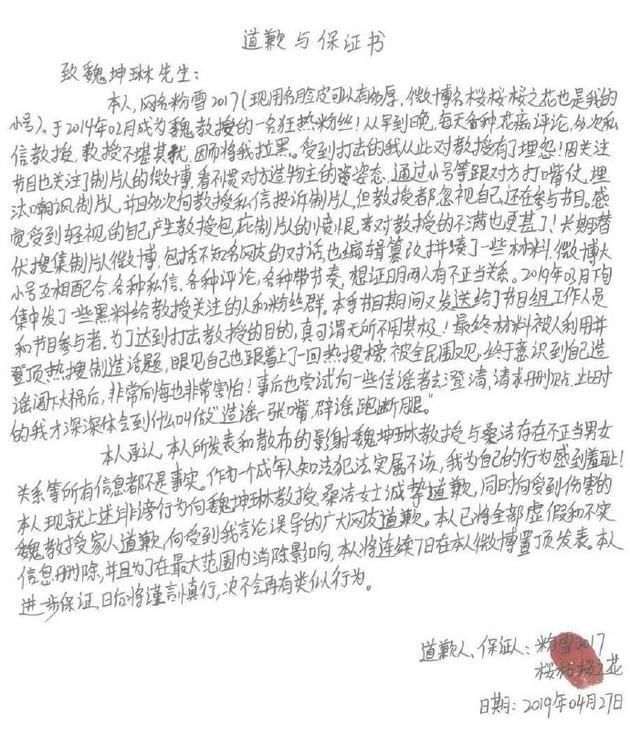 道歉与保证书
致魏坤琳先生：
本人，网名粉雪2017（现用名脸皮可以有多厚，微博名桜桜桜之花也是我的
小号）。于2014年02月成为魏教授的一名狂热粉丝！从早到晚，每天各种花痴评论，多次私
信教授，教授不堪其扰，因而将我拉黑。受到打击的我从此对教授有了埋怨！因关注
节目也关注了制片人的微博，看不惯对方造物主的姿态，通过小号等跟对方打嘴仗，埋
汰嘲讽制片人，并且多次向教授私信投诉制片人，但教授都忽视自己，还在参与节目。感
觉受到轻视的自己，产生教授包庇制片的愤恨，来对教授的不满也更甚了！长期潜
伏搜集制片人微博，包括不知名网友的对话，也编辑篡改拼凑了一些材料，微博大
小号互相配合，各种私信，各种评论，各种带节奏，想证明两人有不正当关系。2019年02月下旬
集中发了一些黑料给教授关注的人和粉丝群。本季节目期间又发送给了节目组工作人员
和节目参与者。为了达到打击教授的目的，真可谓无所不用其极！最终材料被人利用并
登顶热搜制造话题，眼见自己也跟着上了一回热搜榜，被全民围观，终于意识到自己造
谣闯下大祸后，非常后悔也非常害怕！事后也尝试向一些信谣者去澄清，请求删贴，此时
的我才深深体会到什么叫做“造谣一张嘴，辟谣跑断腿。”
本人承认，本人所发表和散布的影射魏坤琳教授与桑洁存在不正当男女
关系等所有信息都不是事实。作为一个成年人知法犯法实属不该，我为自己的行为感到羞耻！
本人现就上述诽谤行为向魏坤琳教授、桑洁女士诚挚道歉，同时向受到伤害的
魏教授家人道歉，向受到我言论误导的广大网友道歉。本人已将全部虚假和不实
信息删除，并且为了在最大范围内消除影响，本人将连续7日在本人微博置顶发表。本人
进一步保证，日后将谨言慎行，决不会再有类似行为。
道歉人、保证人：粉雪2017
桜桜桜之花
日期：2019年04月27日